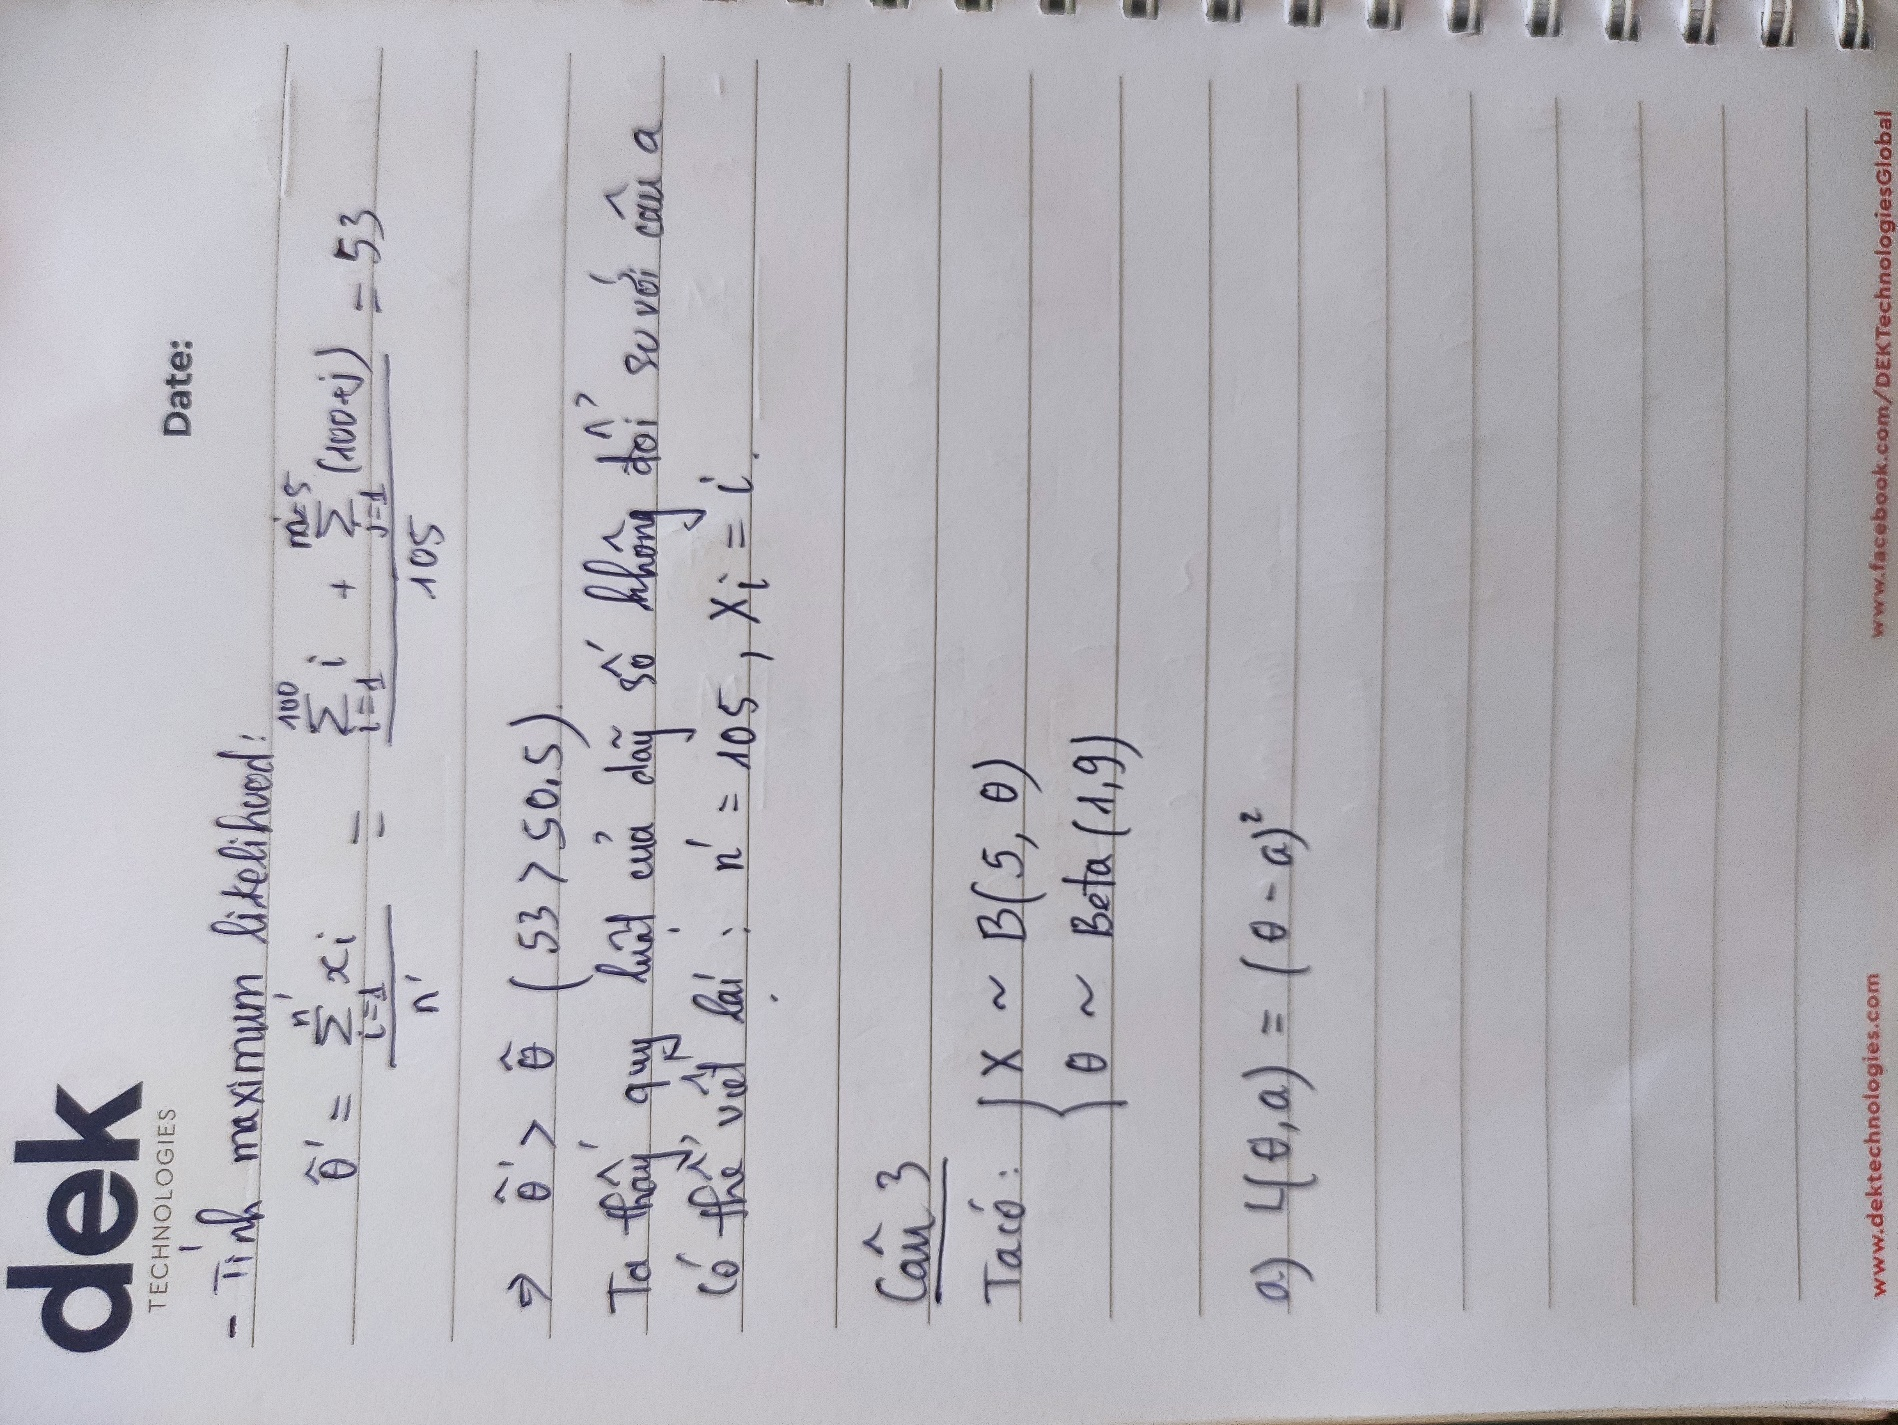 dek
TECHNOLOGIES
Date:
- Tính maximum likelihood:
θ̂' = \frac{\sum_{i=1}^{n'} x_i}{n'} = \frac{\sum_{i=1}^{100} i + \sum_{j=1}^{m=5} (100+j)}{105} = 53
⇒ θ̂' > θ̂ (53 > 50,5)
Ta thấy quy luật của dãy số không đổi so với câu a
Có thể viết lại: n' = 105, Xi = i.
Câu 3
Ta có: { X ~ B(5, θ)
θ ~ Beta (1,9)
a) L(θ,a) = (θ - a)²
www.dektechnologies.com
www.facebook.com/DEKTechnologiesGlobal